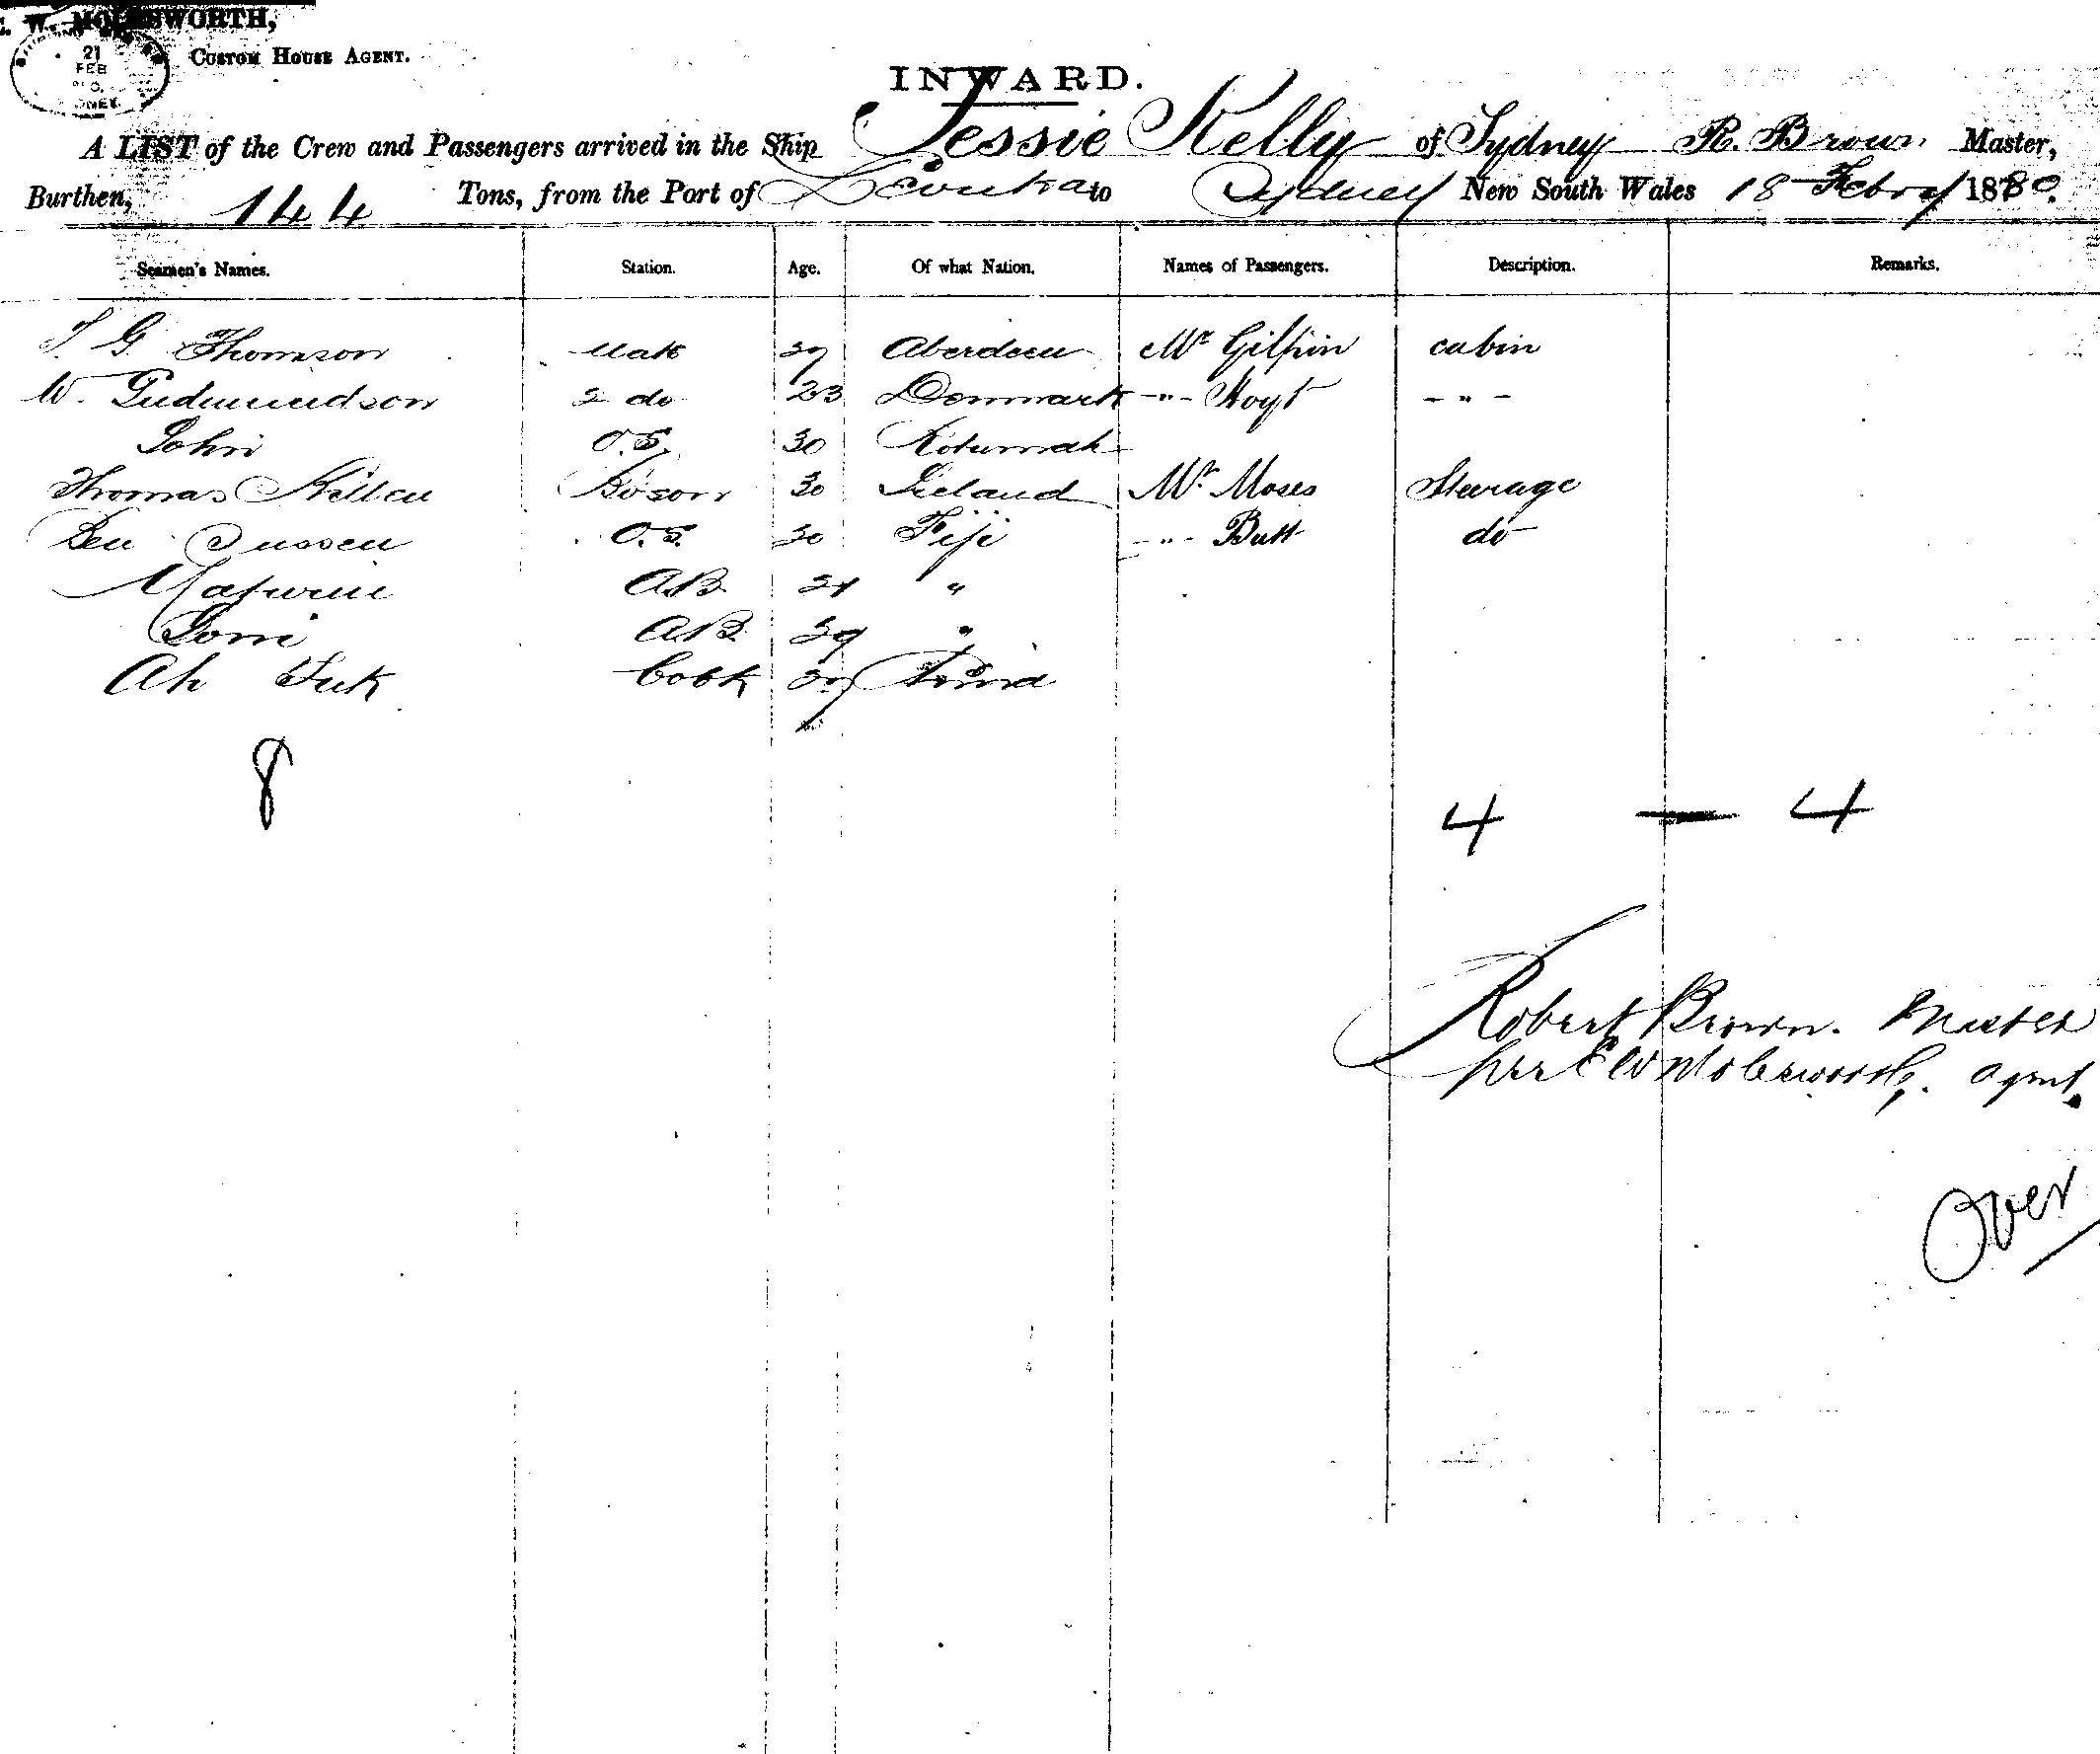 E. W. MOLESWORTH,
CUSTOM HOUSE AGENT.
21
FEB
INWARD.
A LIST of the Crew and Passengers arrived in the Ship Jessie Kelly of Sydney R. Brown Master,
Burthen, 144 Tons, from the Port of Levuka to Sydney New South Wales 18 Febry 1880.
Seamen's Names. Station. Age. Of what Nation. Names of Passengers. Description. Remarks.
G. Thomson Mate Aberdeen Mr Gilpin cabin
W. Gudmundson 2 do 23 Denmark -"- Hoyt -"-
John O.S. 30 Rotumah
Thomas Killen Boson 30 Ireland Mr. Moses Steerage
Ben O.S. 30 Fiji -"- Butt do
AB "
AB 29 "
Ah Cook
8
4 — 4
Robert Brown. Master
per E W Molesworth. Agent.
Over